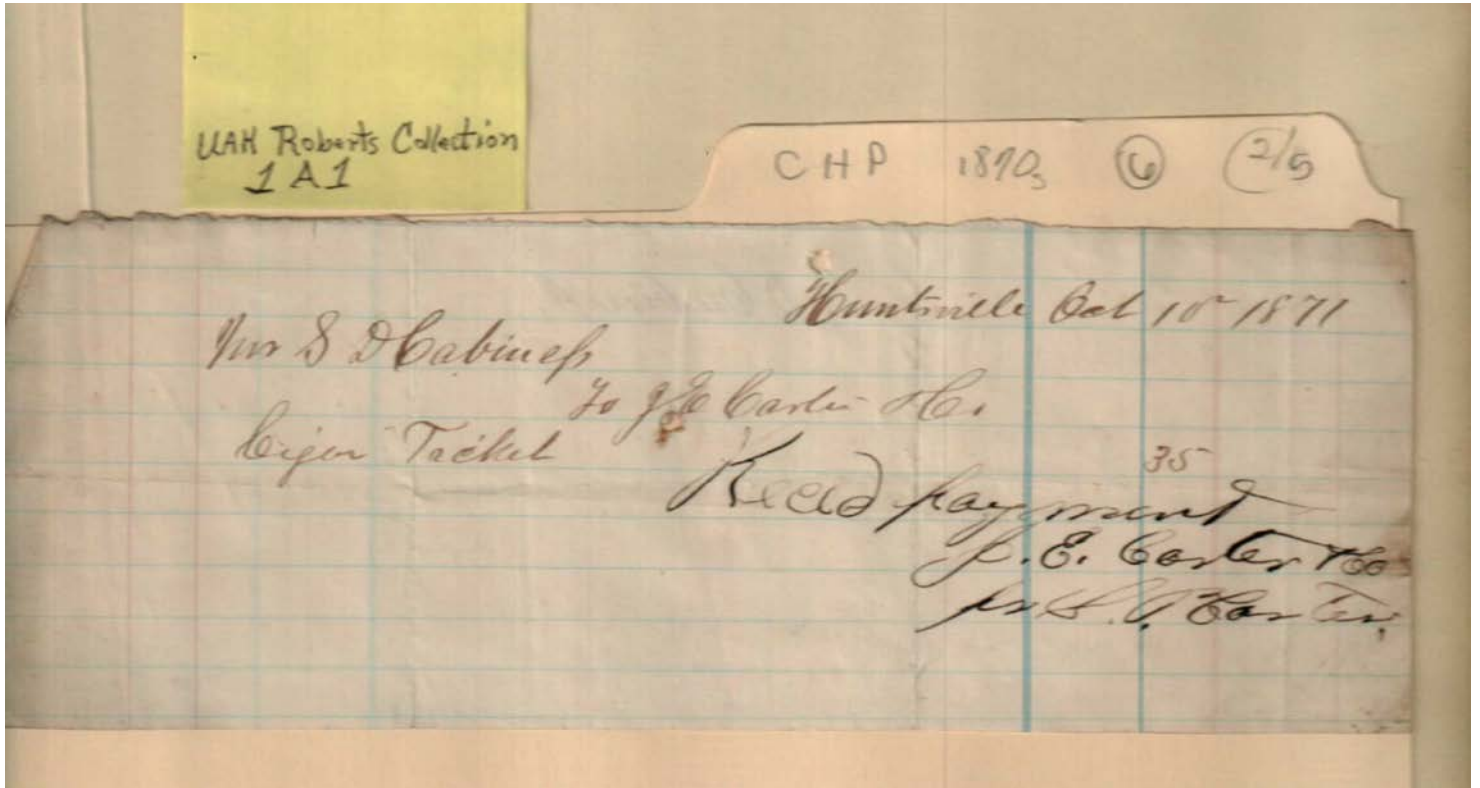 UAH Roberts Collection
1 A 1
CHP 1870s 6 2/5
Huntsville Oct 10 1871
Mr S D Cabiness
To J E Carter & Co.
Cigar Ticket 35
Recd payment
J. E. Carter & Co
pr S. Carter.